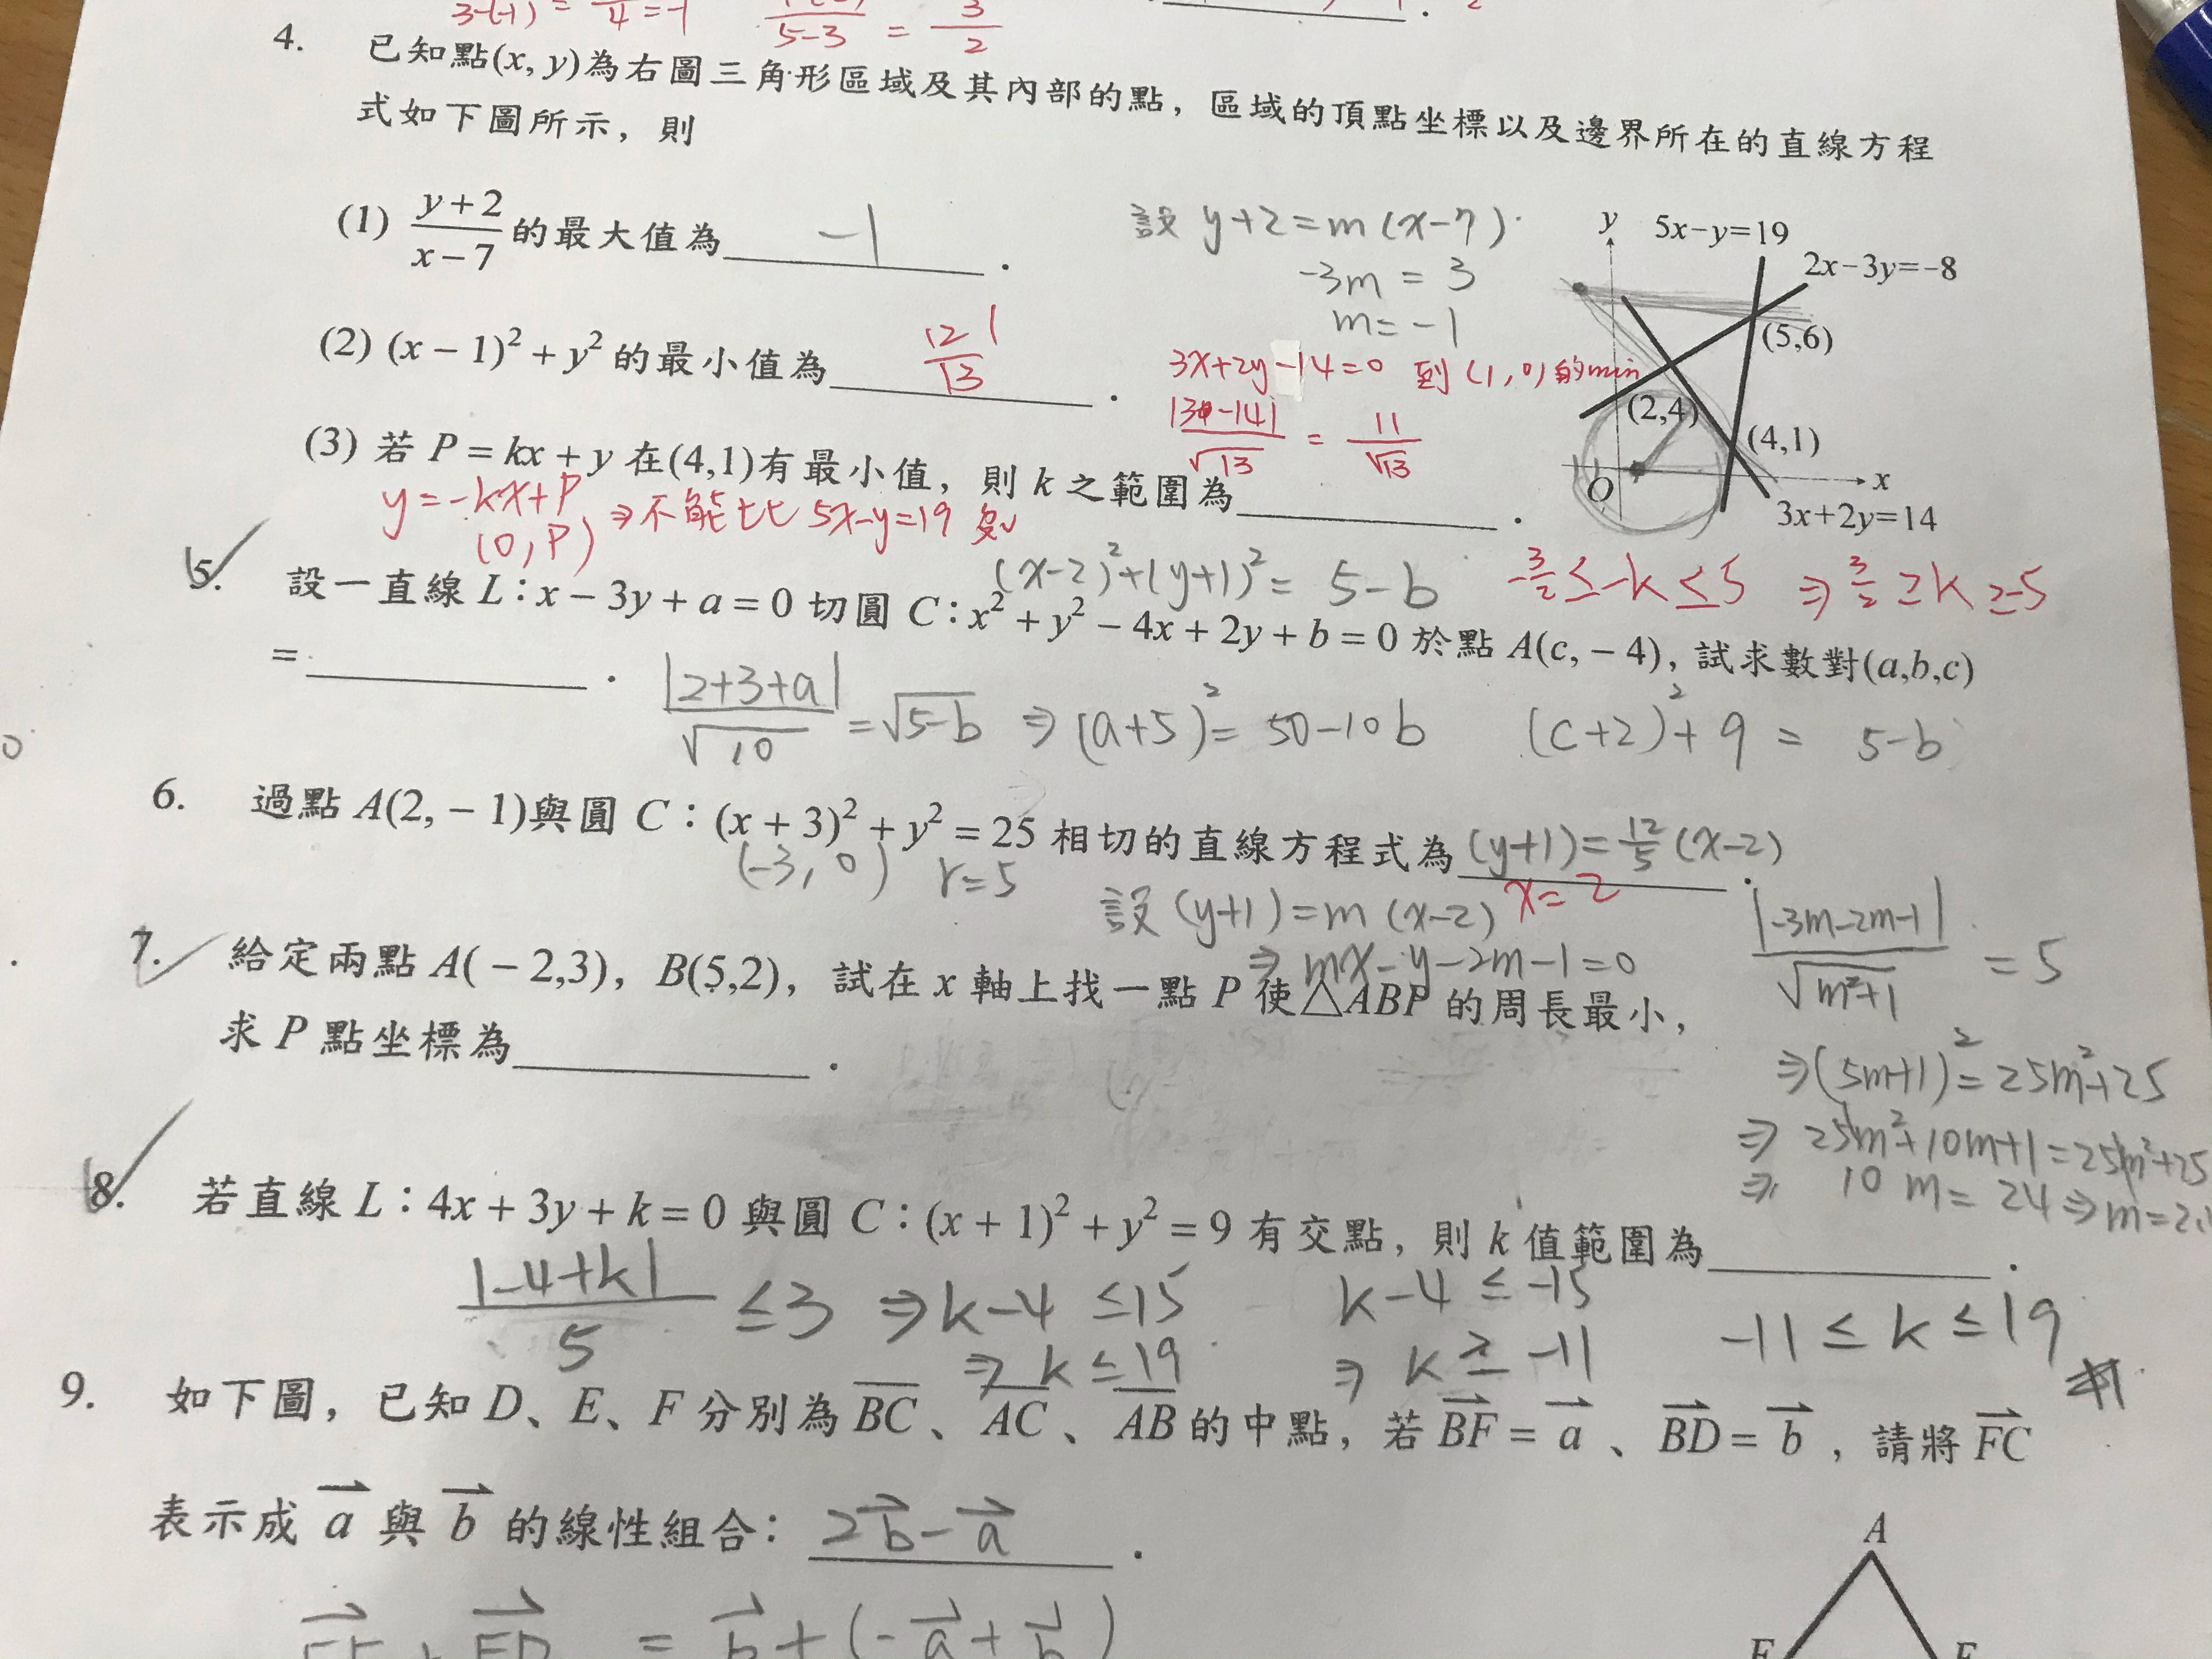 3-(-1) = 4 = -1
5-3 = 3/2
4. 已知點(x, y)為右圖三角形區域及其內部的點，區域的頂點坐標以及邊界所在的直線方程
式如下圖所示，則
(1) (y+2)/(x-7) 的最大值為 -1 .
設 y+2=m(x-7)
-3m = 3
m = -1
y
5x-y=19
2x-3y=-8
(5,6)
(2,4)
(4,1)
O
x
3x+2y=14
(2) (x-1)²+y² 的最小值為 12 1/13 .
3x+2y-14=0 到(1,0)的min
|3-14|/√13 = 11/√13
(3) 若 P=kx+y 在(4,1)有最小值，則 k 之範圍為 .
y=-kx+P
(0,P) ⇒不能比 5x-y=19
-3/2 ≤ -k ≤ 5 ⇒ 3/2 ≥ k ≥ -5
(x-2)²+(y+1)² = 5-b
5. 設一直線 L：x-3y+a=0 切圓 C：x²+y²-4x+2y+b=0 於點 A(c,-4)，試求數對(a,b,c)
= .
|2+3+a|/√10 = √5-b ⇒ (a+5)² = 50-10b
(c+2)²+9 = 5-b
6. 過點 A(2,-1)與圓 C：(x+3)²+y²=25 相切的直線方程式為 (y+1)=12/5(x-2) .
(-3,0) r=5
x=2
設 (y+1)=m(x-2)
⇒ mx-y-2m-1=0
|-3m-2m-1|/√m²+1 = 5
⇒(5m+1)²=25m²+25
⇒ 25m²+10m+1=25m²+25
⇒ 10m=24⇒m=2.
7. 給定兩點 A(-2,3)，B(5,2)，試在 x 軸上找一點 P 使△ABP 的周長最小，
求 P 點坐標為 .
8. 若直線 L：4x+3y+k=0 與圓 C：(x+1)²+y²=9 有交點，則 k 值範圍為 .
|-4+k|/5 ≤3 ⇒k-4 ≤15
⇒ k ≤19
k-4 ≤ -15
⇒ k ≥ -11
-11 ≤ k ≤19
9. 如下圖，已知 D、E、F 分別為 BC、AC、AB 的中點，若 BF = a、BD = b，請將 FC
表示成 a 與 b 的線性組合： 2b-a .
= b+(-a+b)
A